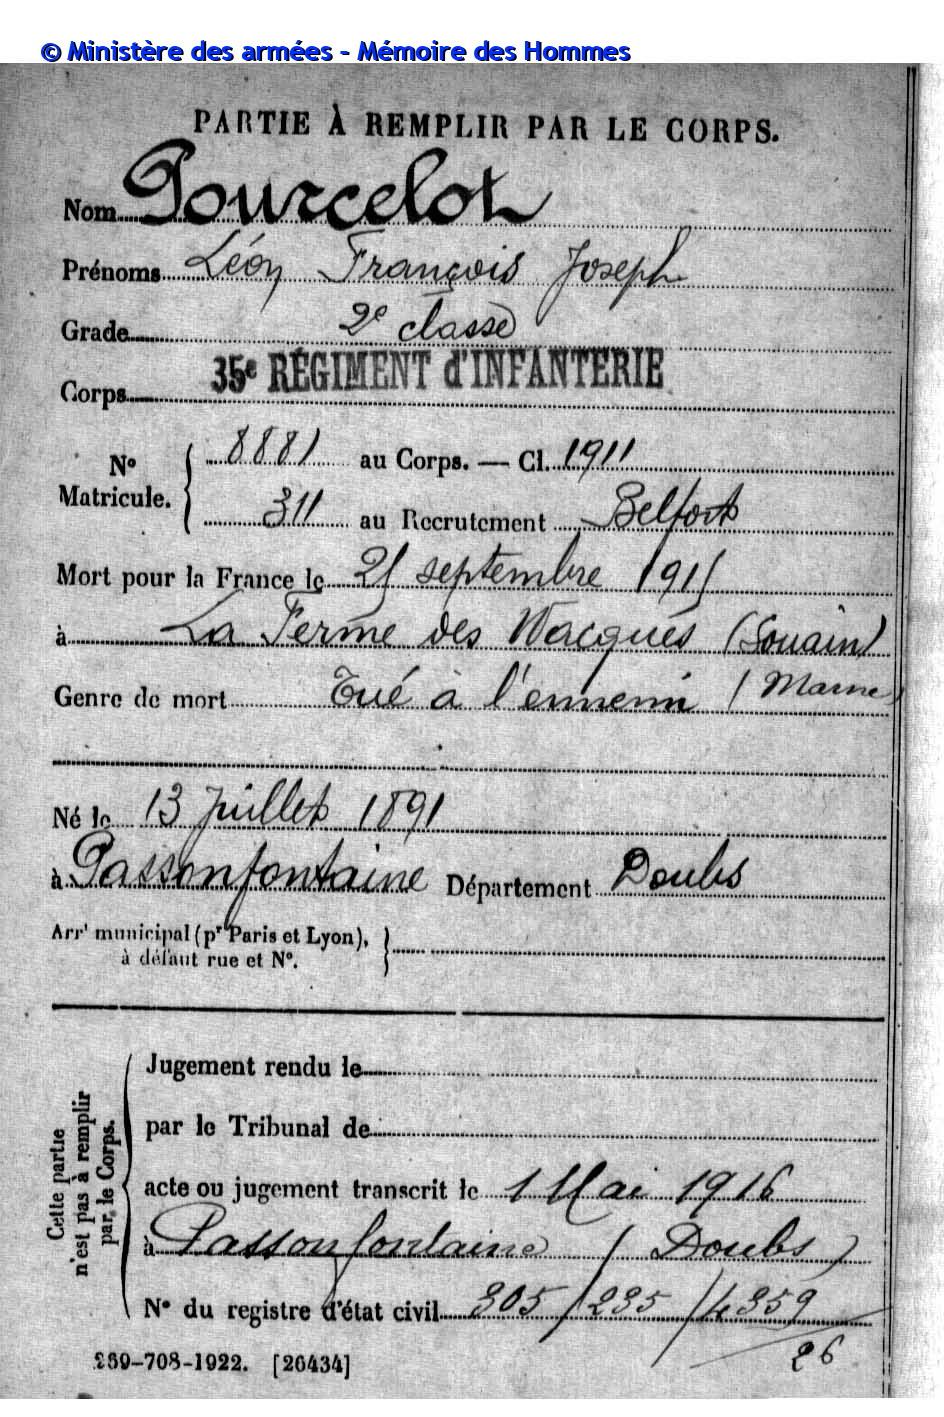 © Ministère des armées - Mémoire des Hommes
PARTIE À REMPLIR PAR LE CORPS.
Nom Pourcelot
Prénoms Léon François Joseph
Grade 2e classe
Corps 35e RÉGIMENT d'INFANTERIE
No Matricule. 8881 au Corps. — Cl. 1911
311 au Recrutement Belfort
Mort pour la France le 25 septembre 1915
à La Ferme des Wacques (Souain)
Genre de mort Tué à l'ennemi (Marne)
Né le 13 Juillet 1891
à Passonfontaine Département Doubs
Arrt municipal (pr Paris et Lyon),
à défaut rue et No.
Cette partie n'est pas à remplir par le Corps.
Jugement rendu le
par le Tribunal de
acte ou jugement transcrit le 1 Mai 1916
à Passonfontaine (Doubs)
No du registre d'état civil 305/235/4359
26
269-708-1922. [26434]